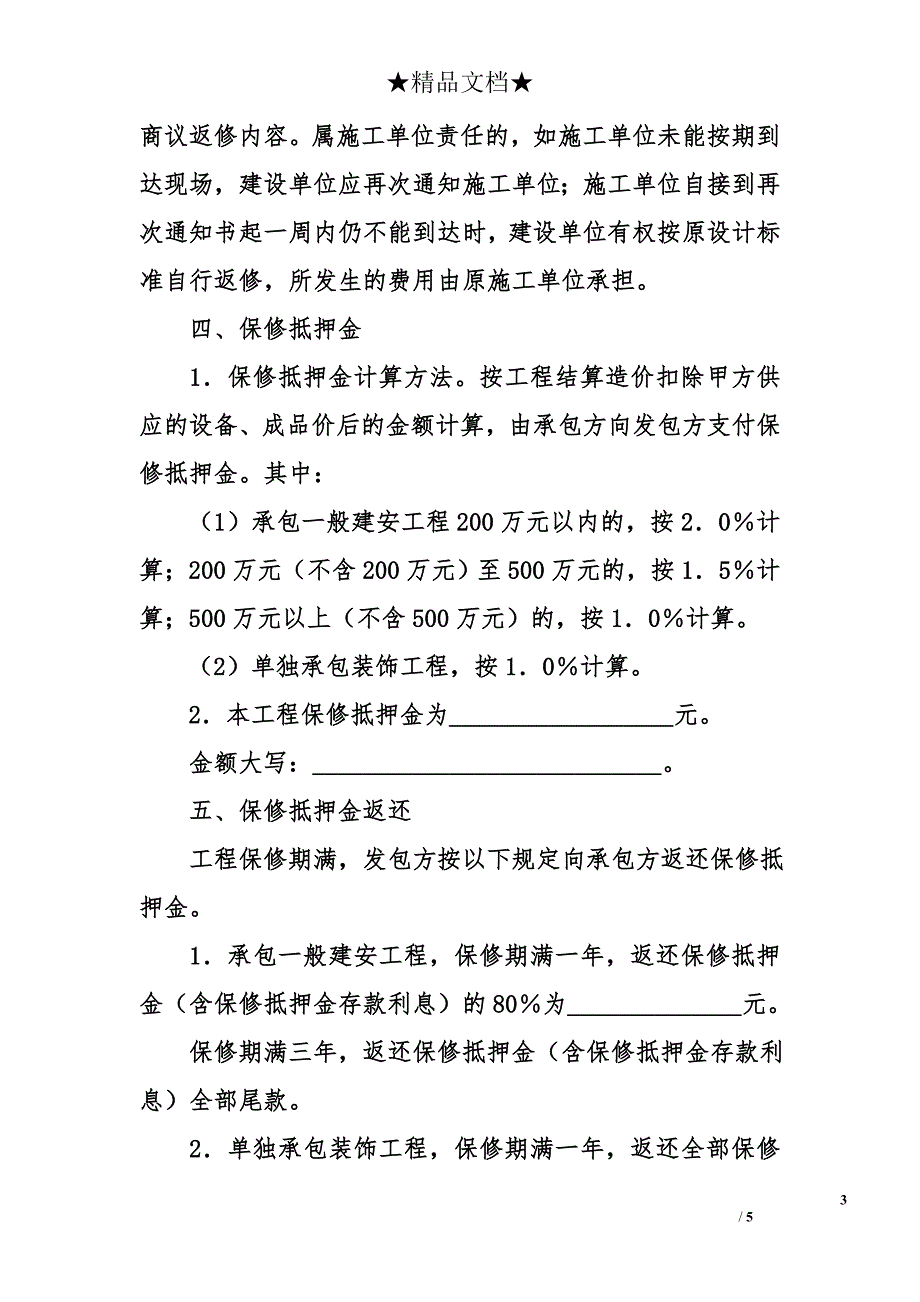 ★精品文档★
商议返修内容。属施工单位责任的，如施工单位未能按期到
达现场，建设单位应再次通知施工单位；施工单位自接到再
次通知书起一周内仍不能到达时，建设单位有权按原设计标
准自行返修，所发生的费用由原施工单位承担。
四、保修抵押金
1．保修抵押金计算方法。按工程结算造价扣除甲方供
应的设备、成品价后的金额计算，由承包方向发包方支付保
修抵押金。其中：
（1）承包一般建安工程 200 万元以内的，按 2．0％计
算；200 万元（不含 200 万元）至 500 万元的，按 1．5％计
算；500 万元以上（不含 500 万元）的，按 1．0％计算。
（2）单独承包装饰工程，按 1．0％计算。
2．本工程保修抵押金为__________________元。
金额大写：____________________________。
五、保修抵押金返还
工程保修期满，发包方按以下规定向承包方返还保修抵
押金。
1．承包一般建安工程，保修期满一年，返还保修抵押
金（含保修抵押金存款利息）的 80％为______________元。
保修期满三年，返还保修抵押金（含保修抵押金存款利
息）全部尾款。
2．单独承包装饰工程，保修期满一年，返还全部保修
3
/ 5